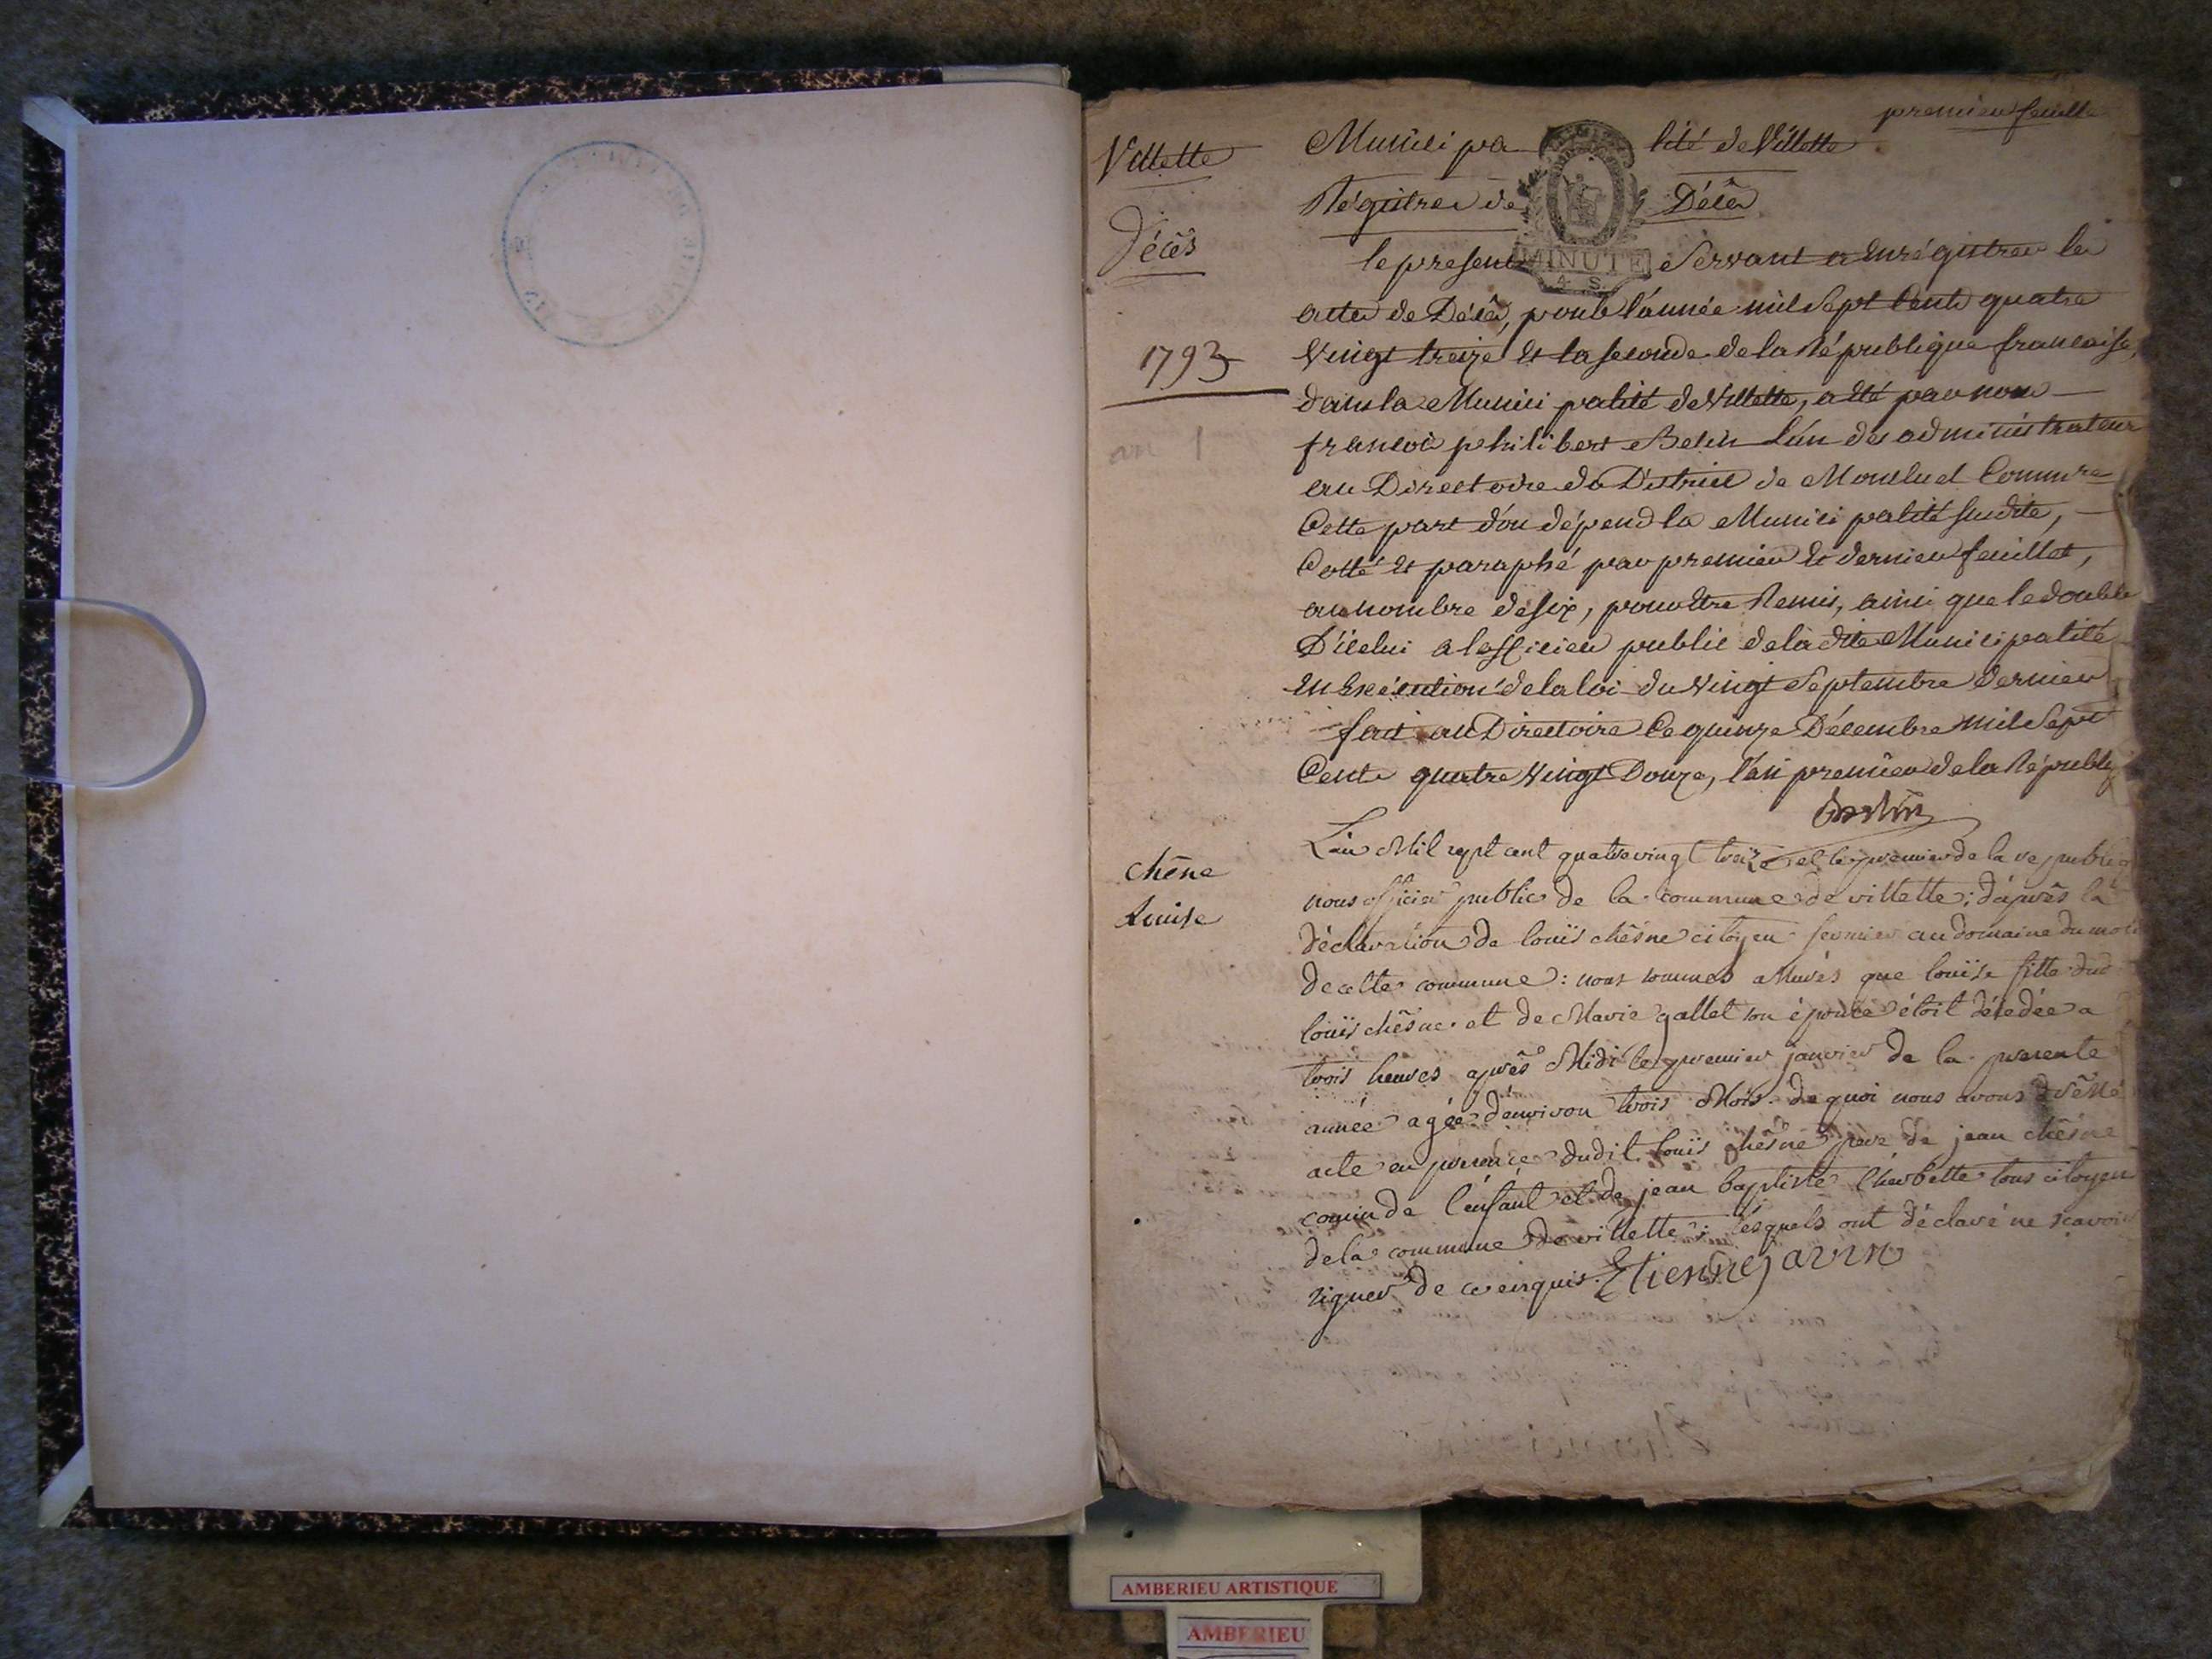 premier feuillet
Villette
Municipalité de Villette
Régistre de Décès
Décès
le present servant a Enrégistrer les
MINUTE
4. S.
actes de Décès, pour l'année mil sept Cents quatre
1793
Vingt treize et la seconde de la République francaise,
dans la Municipalité de Villette, a été par nous
an 1
francois philibert Belin L'un des administrateurs
au Directoire du District de Montluel Commre
Cette part d'ou dépend la Municipalité susdite,
Cotté et paraphé par premier et dernier feuillet,
au nombre de six, pour être Remis, ainsi que le double
D'icelui a l'officier public de la dite Municipalité
en Exécution de la loi du vingt Septembre dernier
fait au Directoire Ce quinze Décembre mil Sept
Cents quatre Vingt Douze, l'an premier de la Républ
L'an Mil sept cent quatre vingt treize et le premier de la republiq
chêne
nous officier public de la commune de villette; d'après la
Louise
déclaration de louïs chêsne citoyen fermier au domaine du
de cette commune: nous sommes assurés que louïse fille dud
louïs chêsne et de Marie gallet son épouse étoit décedée a
trois heures après Midi le premier janvier de la presente
année agée d'environ trois Mois. de quoi nous avons dressé
acte en presence dudit louïs chêsne pere de jean chêsne
cousin de l'enfant et de jean baptiste Cherbette tous citoyen
de la commune de villette; lesquels ont déclaré ne scavoir
signer de ce enquis. Etienne javrin
AMBERIEU ARTISTIQUE
AMBERIEU